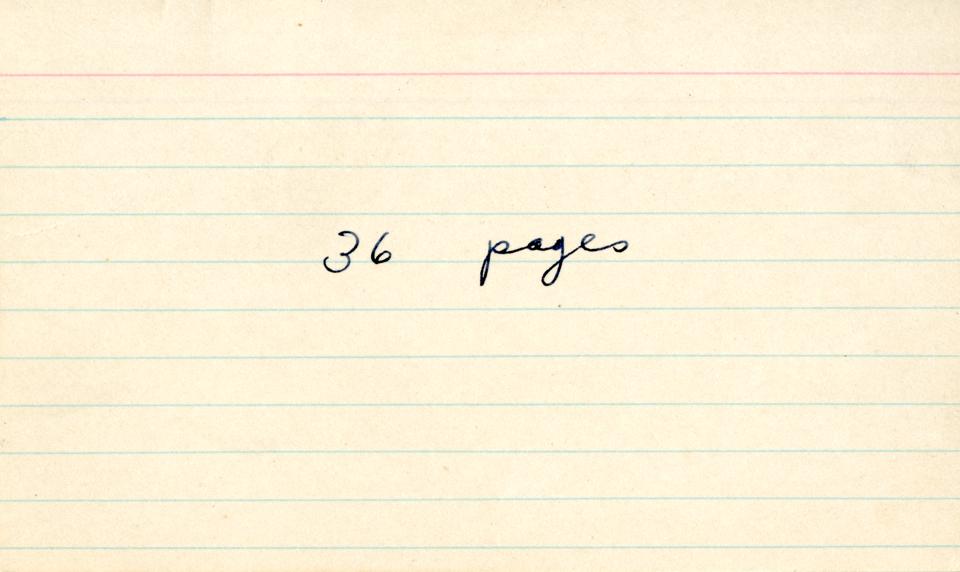 36 pages